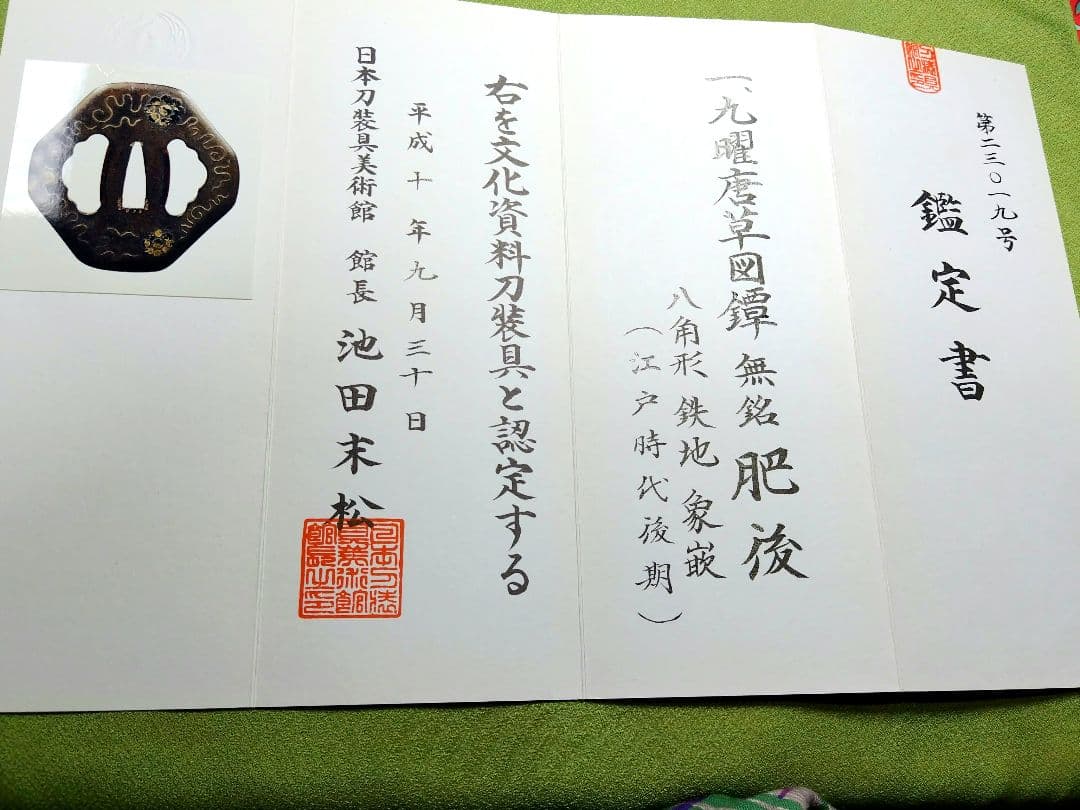 第二三〇一九号
鑑定書
一、九曜唐草図鐔 無銘 肥後
八角形 鉄地 象嵌
（江戸時代後期）
右を文化資料刀装具と認定する
平成十年九月三十日
日本刀装具美術館 館長 池田末松